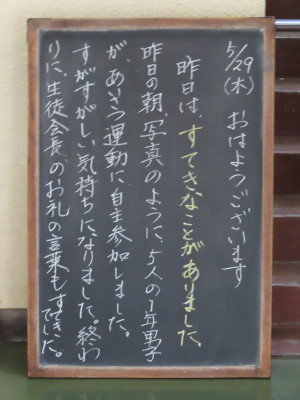 5/29(木) おはようございます
昨日は、すてきなことがありました。
昨日の朝、写真のように、5人の1年男子
が、あいさつ運動に自主参加しました。
すがすがしい気持ちになりました。終わ
りに、生徒会長のお礼の言葉もすてきでした。